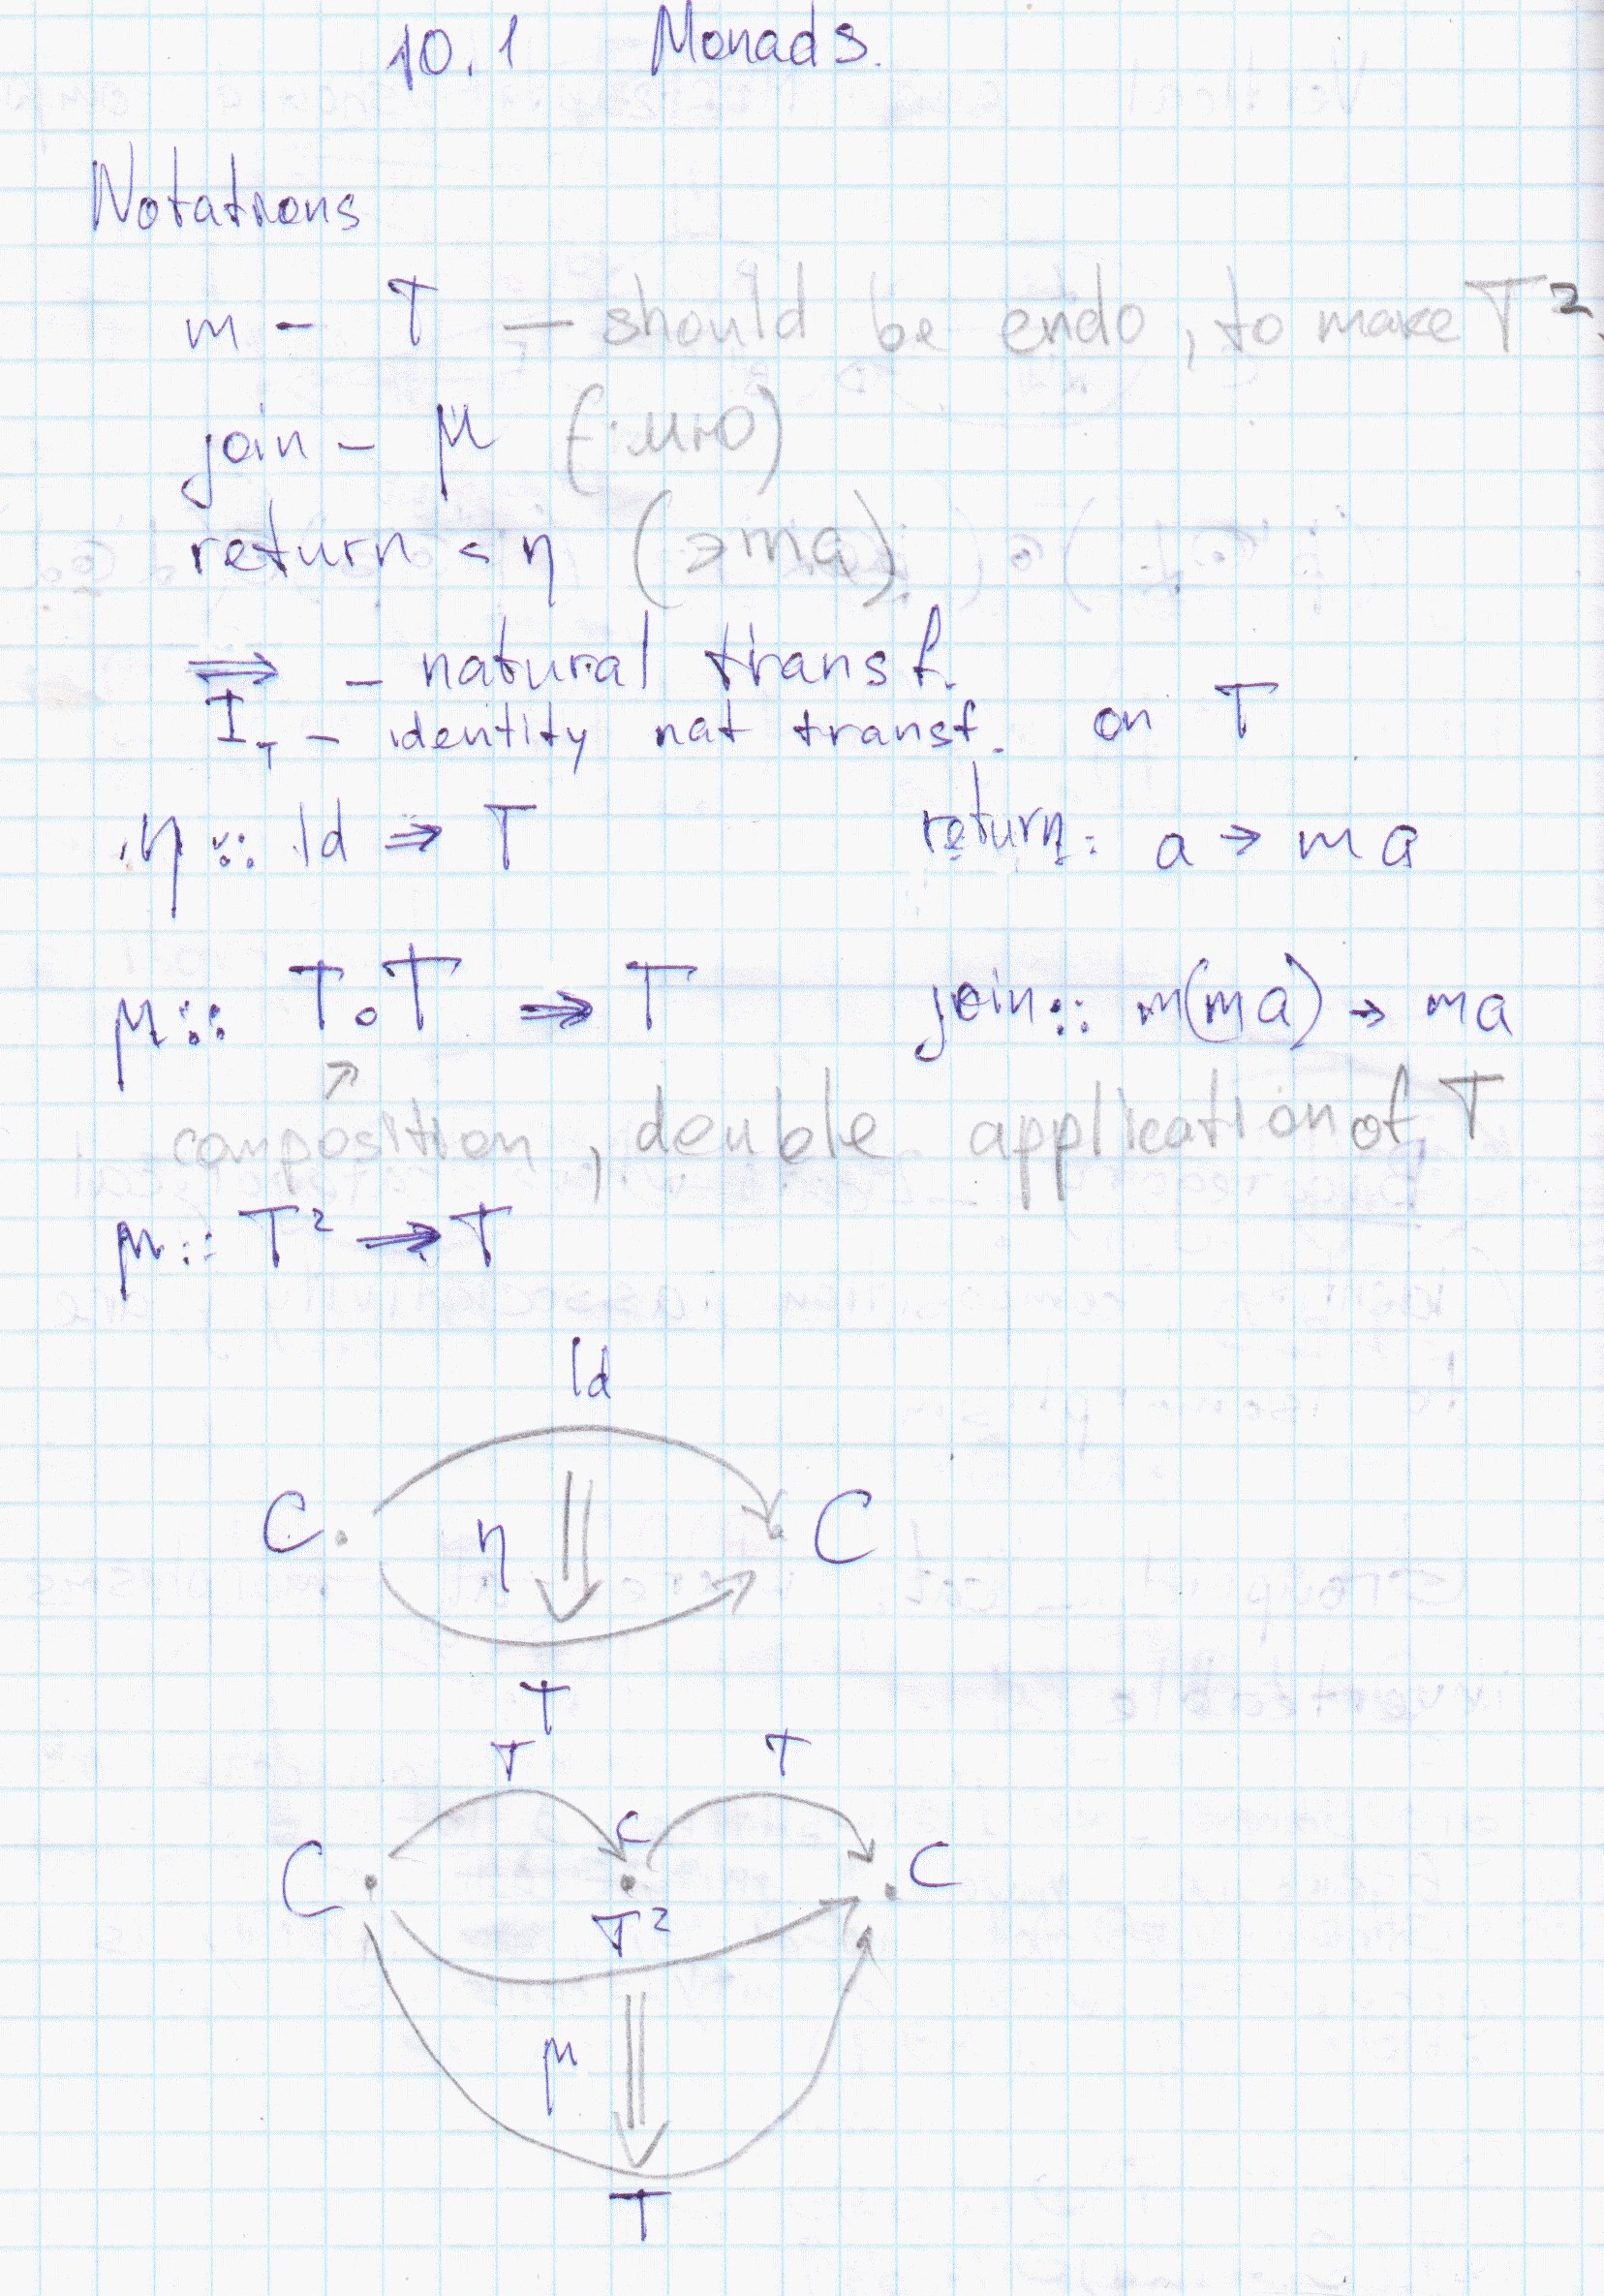 10.1 Monads.
Notations
m - T — should be endo, to make T².
join - μ (мю)
return - η (эта)
⇒ - natural transf.
I_T - identity nat transf. on T
η :: Id ⇒ T return: a → m a
μ :: T∘T ⇒ T join :: m(m a) → m a
↗
composition, double application of T
μ :: T² ⇒ T
Id
C . η C
T
T T
C . C . C
T²
μ
T